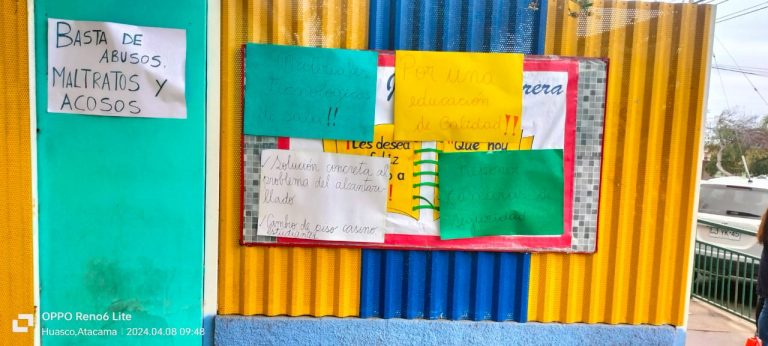 BASTA DE
ABUSOS,
MALTRATOS Y
ACOSOS
tecnologicos
de sala!!
Por una
educación
de Calidad!!
rera
¡Les desea
feliz
a
"Que hoy
/Solución concreta al
problema del alcantari-
llado
/Cambio de piso casino
estudiantil
seguridad
OPPO Reno6 Lite
Huasco,Atacama 2024.04.08 09:48